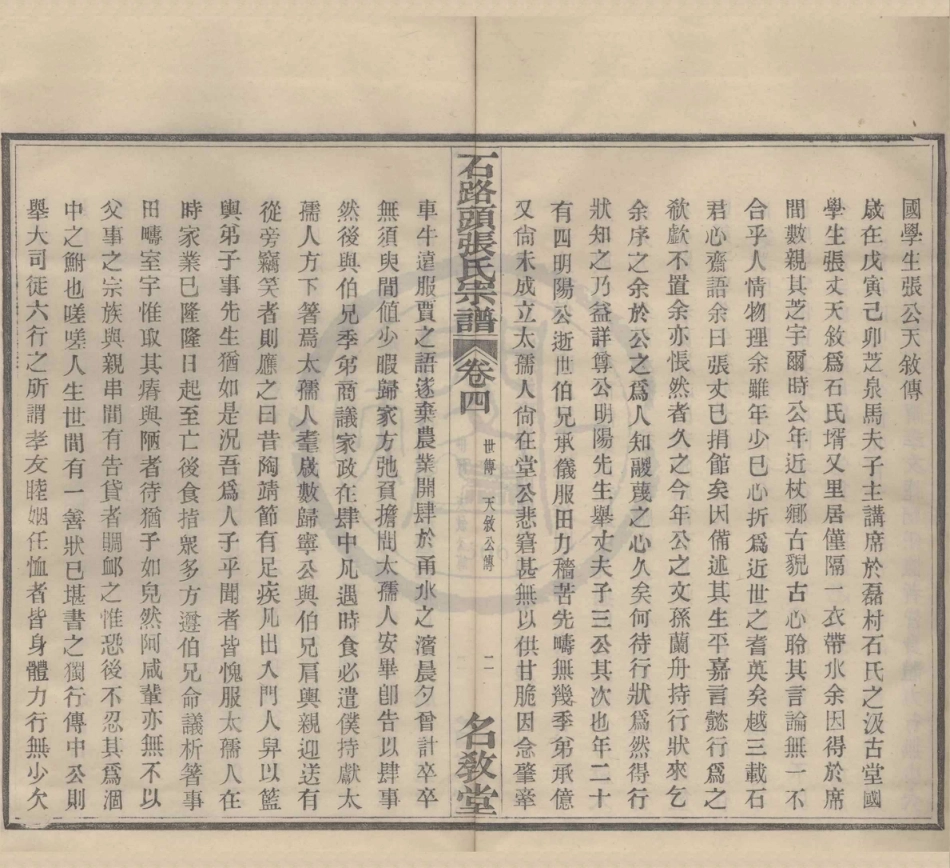 國學生張公天敘傳
歲在戊寅己卯芝泉馬夫子主講席於磊村石氏之汲古堂國
學生張丈天敘爲石氏壻又里居僅隔一衣帶水余因得於席
間數親其芝宇爾時公年近杖鄉古貌古心聆其言論無一不
合乎人情物理余雖年少已心折爲近世之耆英矣越三載石
君心齋語余曰張丈已捐館矣因備述其生平嘉言懿行爲之
欷歔不置余亦悵然者久之今年公之文孫蘭舟持行狀來乞
余序之余於公之爲人知覼蔑之心久矣何待行狀爲然得行
狀知之乃益詳尊公明陽先生舉丈夫子三公其次也年二十
有四明陽公逝世伯兄承儀服田力穡苦先疇無幾季弟承億
又尙未成立太孺人尙在堂公悲窘甚無以供甘脆因念肇牽
石路頭張氏宗譜 卷四 世傳 天敘公傳 二 名教堂
車牛遠服賈之語遂棄農業開肆於甬水之濱晨夕會計卒卒
無須臾間値少暇歸家方弛頁擔問太孺人安畢卽告以肆事
然後與伯兄季弟商議家政在肆中凡遇時食必遣僕持獻太
孺人方下箸焉太孺人耄歲數歸寧公與伯兄肩輿親迎送有
從旁竊笑者則應之曰昔陶靖節有足疾凡出入門人舁以籃
輿弟子事先生猶如是況吾爲人子乎聞者皆愧服太孺人在
時家業已隆隆日起至亡後食指衆多方遵伯兄命議析箸事
田疇室宇惟取其瘠與陋者待猶子如兒然阿咸輩亦無不以
父事之宗族與親串間有告貸者賙卹之惟恐後不忍其爲涸
中之鮒也嗟嗟人生世間有一善狀已堪書之獨行傳中公則
舉大司徒六行之所謂孝友睦姻任恤者皆身體力行無少欠